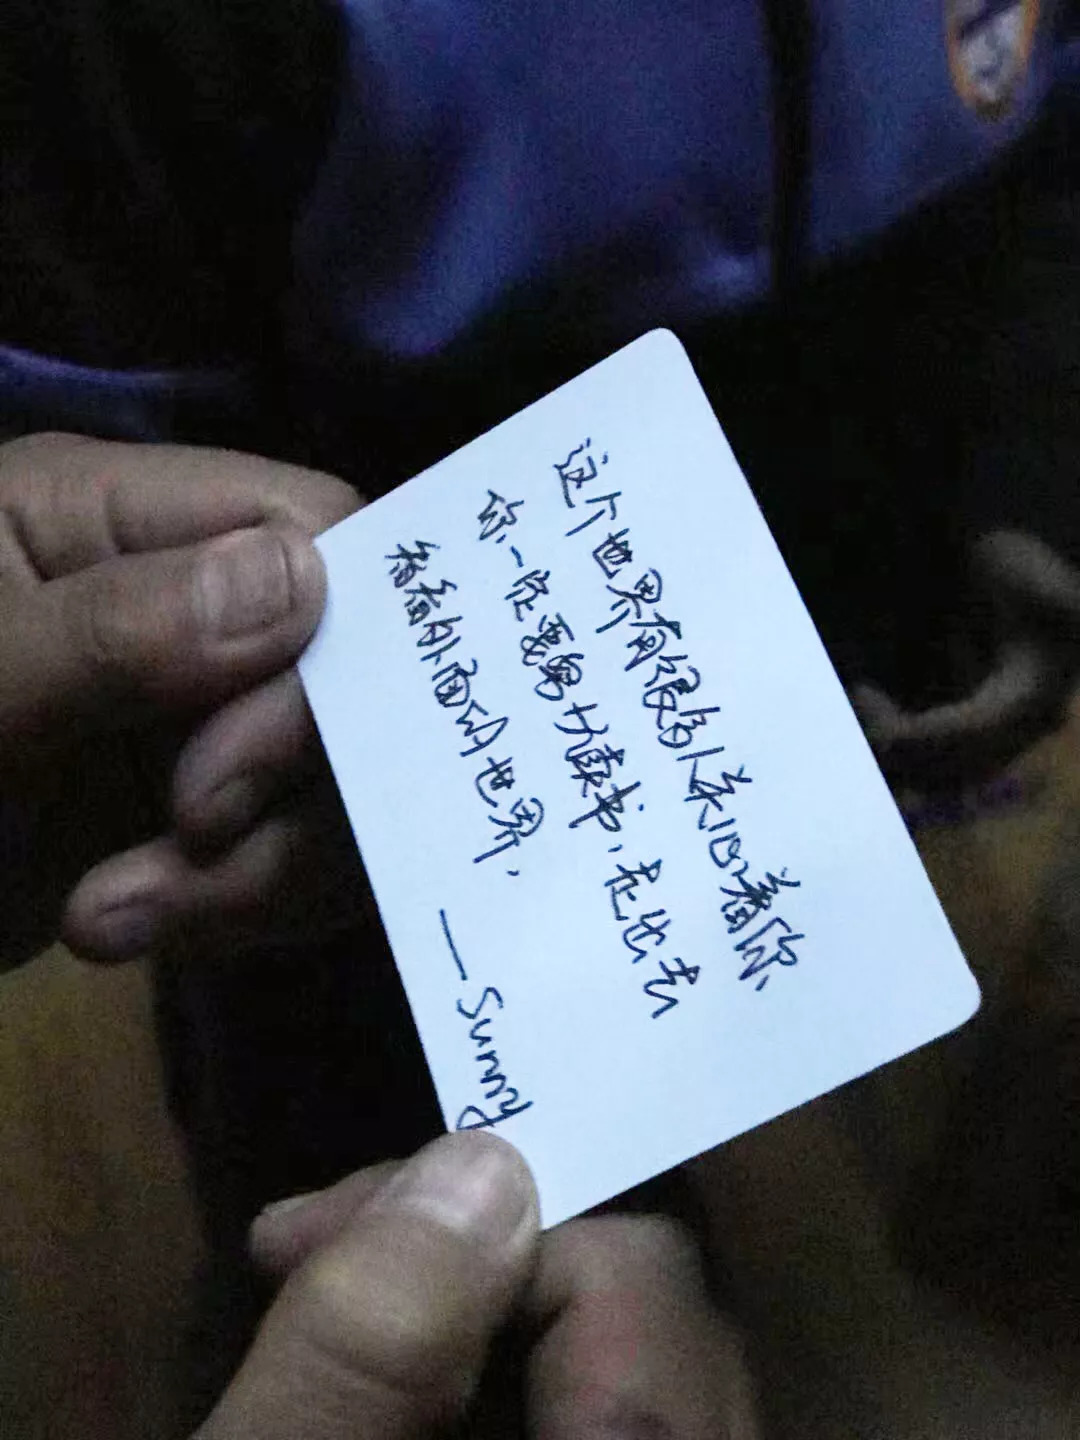 这个世界有很多人关心着你
你一定要努力读书,走出去
看看外面的世界.
——Sunny